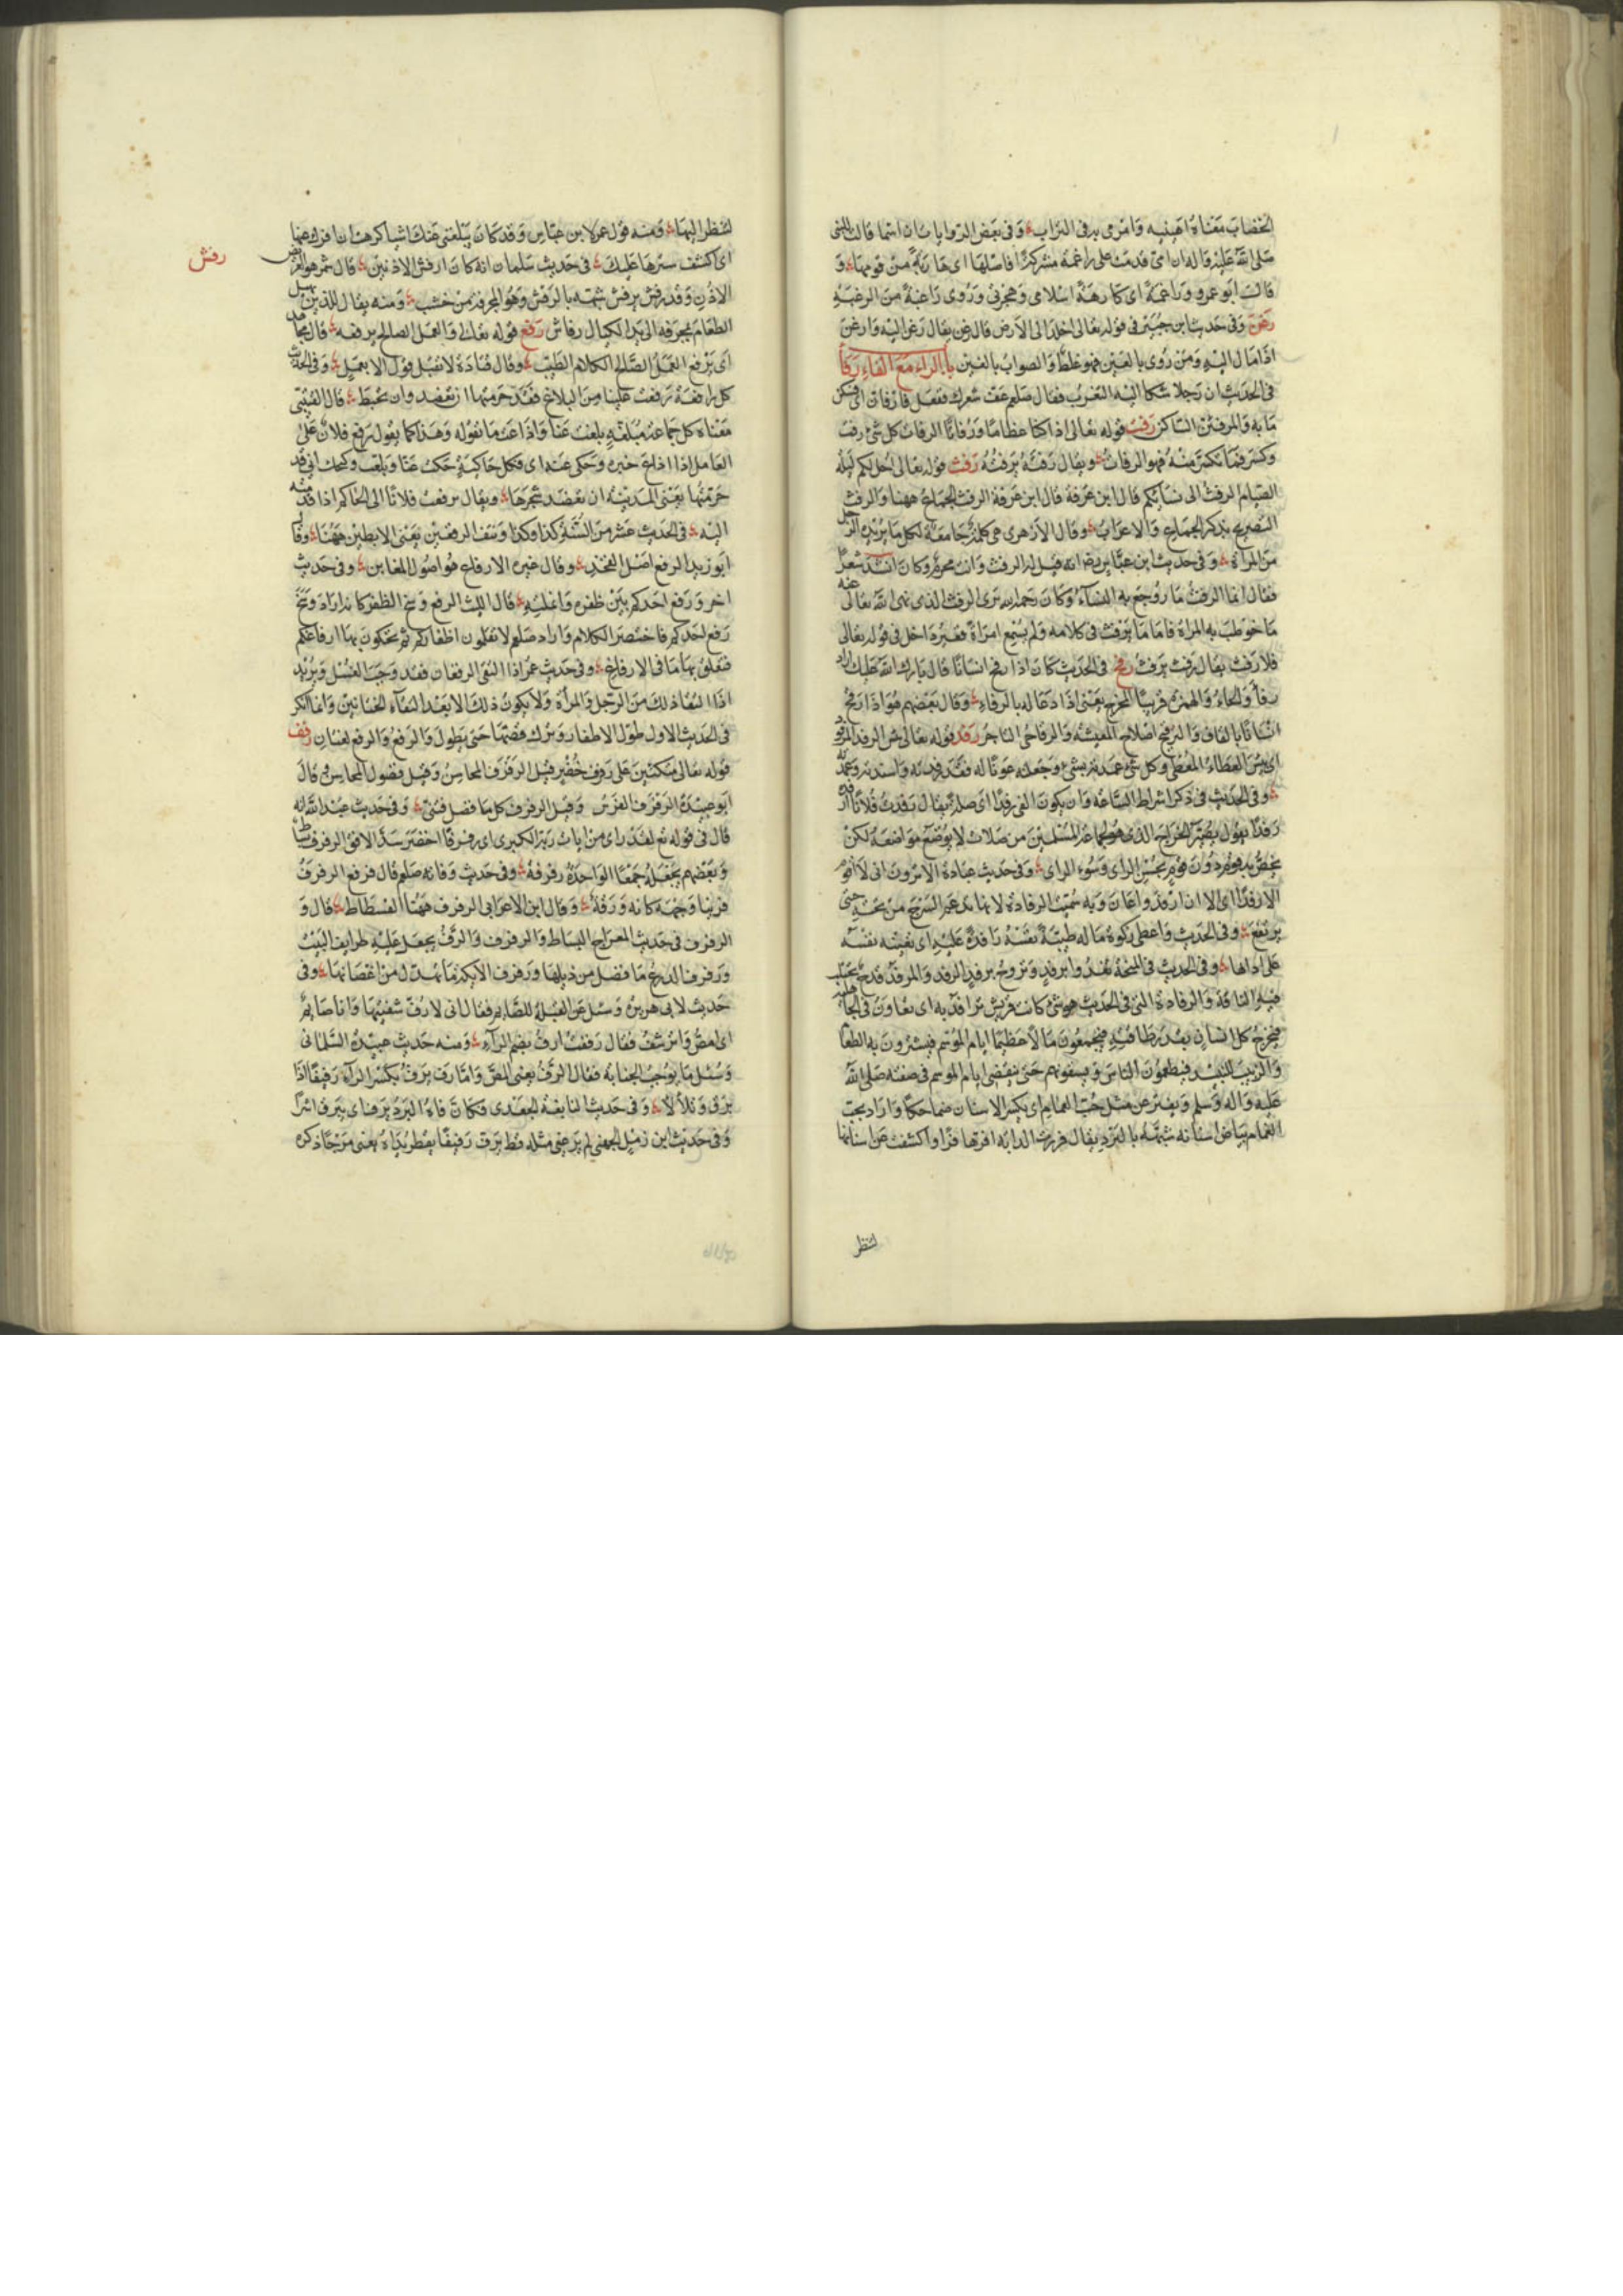 الخضاب معناه اهينيه وارمى به فى التراب وفى بعض الروايات ان اسما قالت للنبى
صلى الله عليه وآله ان امى قدمت على راغمة مشركة افاصلها اى هاربة من قومها و
قالت ابو عمرو وراغمة اى كارهة اسلامى وهجرتى وروى راغبة من الرغبة
رغن وفى حديث ابن جبير فى قوله تعالى اخلد الى الارض قال رغن يقال رغن اليه وارغن
اذا مال اليه ومن روى بالعين فهو غلط والصواب بالغين باب الراء مع الفاء رفأ
فى الحديث ان رجلا شكا اليه التعزب فقال صلعم عف شعرك ففعل فارفان اى فسكن
ما به والمرفئن الساكن رفت قوله تعالى اذا كنا عظاما ورفاتا الرفات كل شئ رفت
وكسر فما تكسر منه فهو الرفات ويقال رفته يرفته رفث قوله تعالى احل لكم ليلة
الصيام الرفث الى نسائكم قال ابن عرفة الرفث الجماع ههنا والرفث
التصريح بذكر الجماع والاعراب وقال الازهرى هى كلمة جامعة لكل ما يريده الرجل
من المراة وفى حديث ابن عباس رضه انه قيل له الرفث وانت محرم وكان انشد شعرا
فقال انما الرفث ما روجع به النساء وكان رحمه الله يرى الرفث الذى نهى الله تعالى عنه
ما خوطب به المراة فاما ما يرفث فى كلامه ولم يسمع امراة فغير داخل فى قوله تعالى
فلا رفث يقال رفث يرفث رفح فى الحديث كان اذا رفح انسانا قال بارك الله عليك اراد
رفأ والحاء والهمزة قريبا المخرج يعنى اذا دعا له بالرفاء وقال بعضهم هو اذا رقح
انسانا بالقاف والترقح اصلاح المعيشة والرقاحى التاجر رفد قوله تعالى بئس الرفد المرفود
اى بئس العطاء المعطى وكل شئ عمدته بشئ وجعلته عونا له فقد رفدته واسندته وعمدته
وفى الحديث فى ذكر اشراط الساعة وان يكون الفئ رفدا اى صلة يقال رفدت فلانا
رفدا يقول يصير الخراج الذى هو لجماعة المسلمين من صلات لا يوضع مواضعه لكن
يخص به قوم دون قوم بحسن الراى وسوء الراى وفى حديث عبادة الا ترون انى لا اقوم
الا رفدا اى الا ان ارفد واعان وبه سميت الرفادة لانها يدعم السرج من تحته حتى
يرتفع وفى الحديث واعطى زكوة ماله طيبة نفسه رافدة عليه اى تعينه نفسه
على ادائها وفى الحديث فى المنحة تغدو ابرفد وتروح برفد الرفد والمرفد قدح يحتلب
فيه الناقة والرفادة التى فى الحديث هو شئ كانت قريش ترافد به اى تعاون فى الجاهلية
فيخرج كل انسان بقدر طاقته فيجمعون مالا عظيما ايام الموسم فيشترون به الطعام
والزبيب للنبيذ فيطعمون الناس ويسقونهم حتى ينقضى ايام الموسم فى صفته صلى الله
عليه وآله وسلم ويفتر عن مثل حب الغمام اى يكسر الاسنان ضاحكا واراد بحب
الغمام بياض اسنانه شبهه بالبرد يقال فررت الدابة افرها فرا وا كشفت عن اسنانها
لتنظر
لتنظر اليها ومنه قول عمر لابن عباس وقد كان يبلغنى عنك اشيا كرهت ان افرك عنها
اى اكشف سترها عليك فى حديث سلمان انه كان ارفش الاذنين قال شمر هو العريض
رفش
الاذن وقد رفش يرفش شبه بالرفش وهو المجرفة من خشب ومنه يقال للذى يهيل
الطعام بمجرفه الى يد الكيال رفاش رفع قوله تعالى والعمل الصالح يرفعه قال مجاهد
اى يرفع العمل الصالح الكلام الطيب وقال قتادة لا تقبل قول الا بعمل وفى الحديث
كل رافعة رفعت علينا من البلاغ فقد حرمتها ان تعضد وان تخبط قال القتيبى
معناه كل جماعة مبلغة بلغت عنا واذاعت ما نقوله وهذا كما يقول رفع فلان على
العامل اذا اذاع خبره وحكى عنه اى فكل حاكية حكت عنا وبلغت وليحك انى قد
حرمتها يعنى المدينة ان يعضد شجرها ويقال رفعت فلانا الى الحاكم اذا قدمته
اليه فى الحديث عشر من السنة كذا وكذا ونتف الرفغين يعنى الابطين ههنا وقال
ابو زيد الرفغ اصل الفخذ وقال غيره الارفاغ هو اصول المغابن وفى حديث
اخر ورفغ احدكم بين ظفره وانملته قال الليث الرفغ وسخ الظفر كانه اراد وسخ
رفغ احدكم فاختصر الكلام واراد صلعم لا تقلمون اظفاركم ثم تحكون بها ارفاغكم
فتعلق بها ما فى الارفاغ وفى حديث عمر اذا التقى الرفغان فقد وجب الغسل ويريد
اذا التقا ذلك من الرجل والمرأة ولا يكون ذلك الا بعد التقاء الختانين وانما انكر
فى الحديث الاول طول الاظفار وترك قصها حتى يطول والرفغ والرفغ لغتان رفف
قوله تعالى متكئين على رفرف خضر قيل الرفرف المحابس وقيل فضول المحابس قال
ابو عبيدة الرفرف الفرش وقيل الرفرف كل ما فضل فثنى وفى حديث عبد الله انه
قال فى قوله تع لقد راى من ايات ربه الكبرى اى رفرفا اخضر سد الافق الرفرف بساط
وبعضهم يجعله جمعا الواحدة رفرفة وفى حديث وفاته صلعم قال فرفع الرفرف
فراينا وجهه كانه ورقة وقال ابن الاعرابى الرفرف ههنا الفسطاط قال و
الرفرف فى حديث المعراج البساط والرفرف والرف يجعل عليه طرايف البيت
ورفرف الدرع ما فضل من ذيلها ورفرف الايكة ما تهدل من اغصانها وفى
حديث لابى هريرة وسئل عن القبلة للصايم فقال انى لارف شفتيها وانا صايم
اى امص وارتشف فقال رففت ارف بضم الراء ومنه حديث عبيدة السلمانى
وسئل ما يوجب الجنابة فقال الرف يعنى المص واما رف يرف بكسر الراء رفيفا اذا
برق وتلألأ وفى حديث النابغة الجعدى فكان فاه البرد يرف اى يبرق اشرا
وفى حديث ابن زميل الجهنى لم ير عينى مثله قط يرف رفيفا يقطر نداه يعنى مرجا ذكره